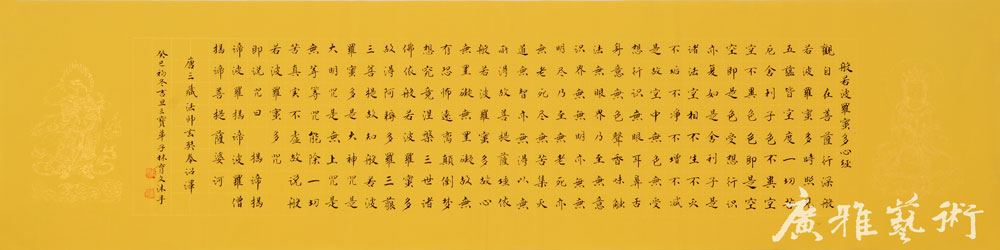 般若波羅蜜多心經
觀自在菩薩行深般
若波羅蜜多時照見
五蘊皆空度一切苦
厄舍利子色不異空
空不異色色即是空
空即是色受想行識
亦復如是舍利子是
諸法空相不生不灭
不垢不淨不增不減
是故空中無色無受
想行識無眼耳鼻舌
身意無色聲香味觸
法無眼界乃至無意
識界無無明亦無無
明盡乃至無老死亦
無老死盡無苦集灭
道無智亦無得以無
所得故菩提薩埵依
般若波羅蜜多故心
無罣礙無罣礙故無
有恐怖遠離顛倒夢
想究竟涅槃三世諸
佛依般若波羅蜜多
故得阿耨多羅三藐
三菩提故知般若波
羅蜜多是大神咒是
大明咒是無上咒是
無等等咒能除一切
苦真實不虛故說般
若波羅蜜多咒
即說咒曰 揭諦揭
諦波羅揭諦波羅僧
揭諦菩提薩婆訶
唐三藏法師玄奘奉詔譯
癸巳初冬吉旦三寶弟子林育文沐手
廣雅藝術